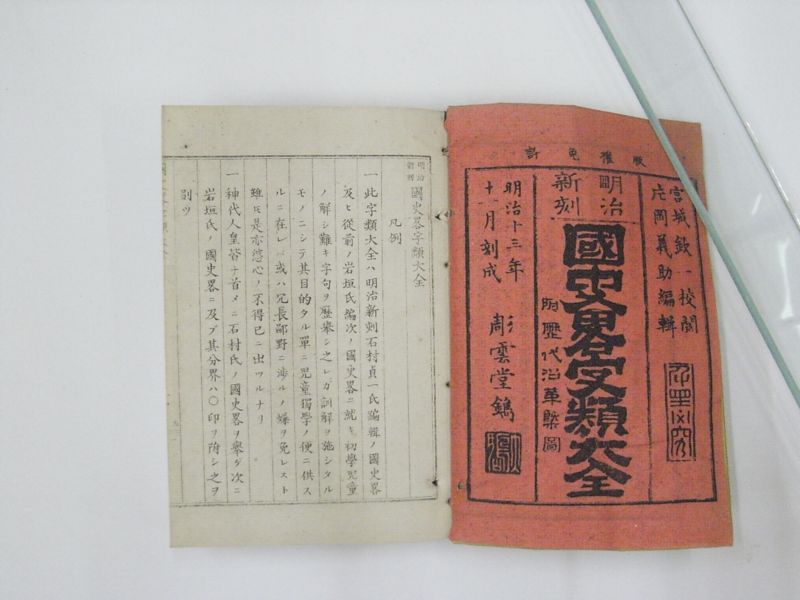 許免權版
宮城欽一校閲
片岡義助編輯
明治
新刻
國史畧字類大全
附歴代沿革槩圖
明治十三年
十一月刻成
彫雲堂鐫
明治
新刻
國史畧字類大全
凡例
一此字類大全ハ明治新刻石村貞一氏編輯ノ國史畧
及ヒ從前ノ岩垣氏編次ノ國史畧ニ就キ初學兒童
ノ解シ難キ字句ヲ歴擧シ之レガ訓解ヲ施シタル
モノニシテ其目的タル單ニ兒童獨學ノ便ニ供ス
ルニ在レバ或ハ冗長鄙野ニ渉ルノ嫌ヲ免レスト
雖𪜈是亦婆心ノ不得已ニ出ツルナリ
一神代人皇皆十首メニ石村氏ノ國史畧ヲ擧ゲ次ニ
岩垣氏ノ國史畧ニ及ブ其分界ハ〇印ヲ附シ之ヲ
別ツ